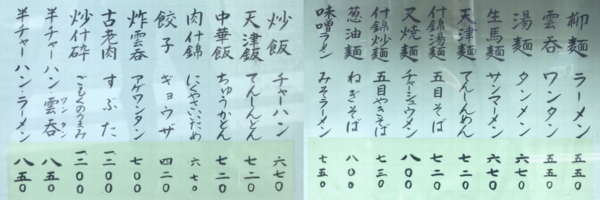 柳麺 ラーメン 五五〇
雲呑 ワンタン 五五〇
湯麺 タンメン 六七〇
生馬麺 サンマーメン 六七〇
天津麺 てんしんめん 七二〇
什錦湯麺 五目そば 七二〇
叉焼麺 チャーシュウメン 八〇〇
什錦炒麺 五目やきそば 七三〇
葱油麺 ねぎそば 八〇〇
味噌ラーメン みそラーメン 七五〇
炒飯 チャーハン 六七〇
天津飯 てんしんどん 七二〇
中華飯 ちゅうかどん 七二〇
肉什錦 にくやさいいため 六七〇
餃子 ギョウザ 四二〇
炸雲呑 アゲワンタン 七〇〇
古老肉 すぶた 一二〇〇
炒什砕 ごもくのうまみ 一二〇〇
半チャーハン 雲呑 ワンタン 八五〇
半チャーハンラーメン 八五〇